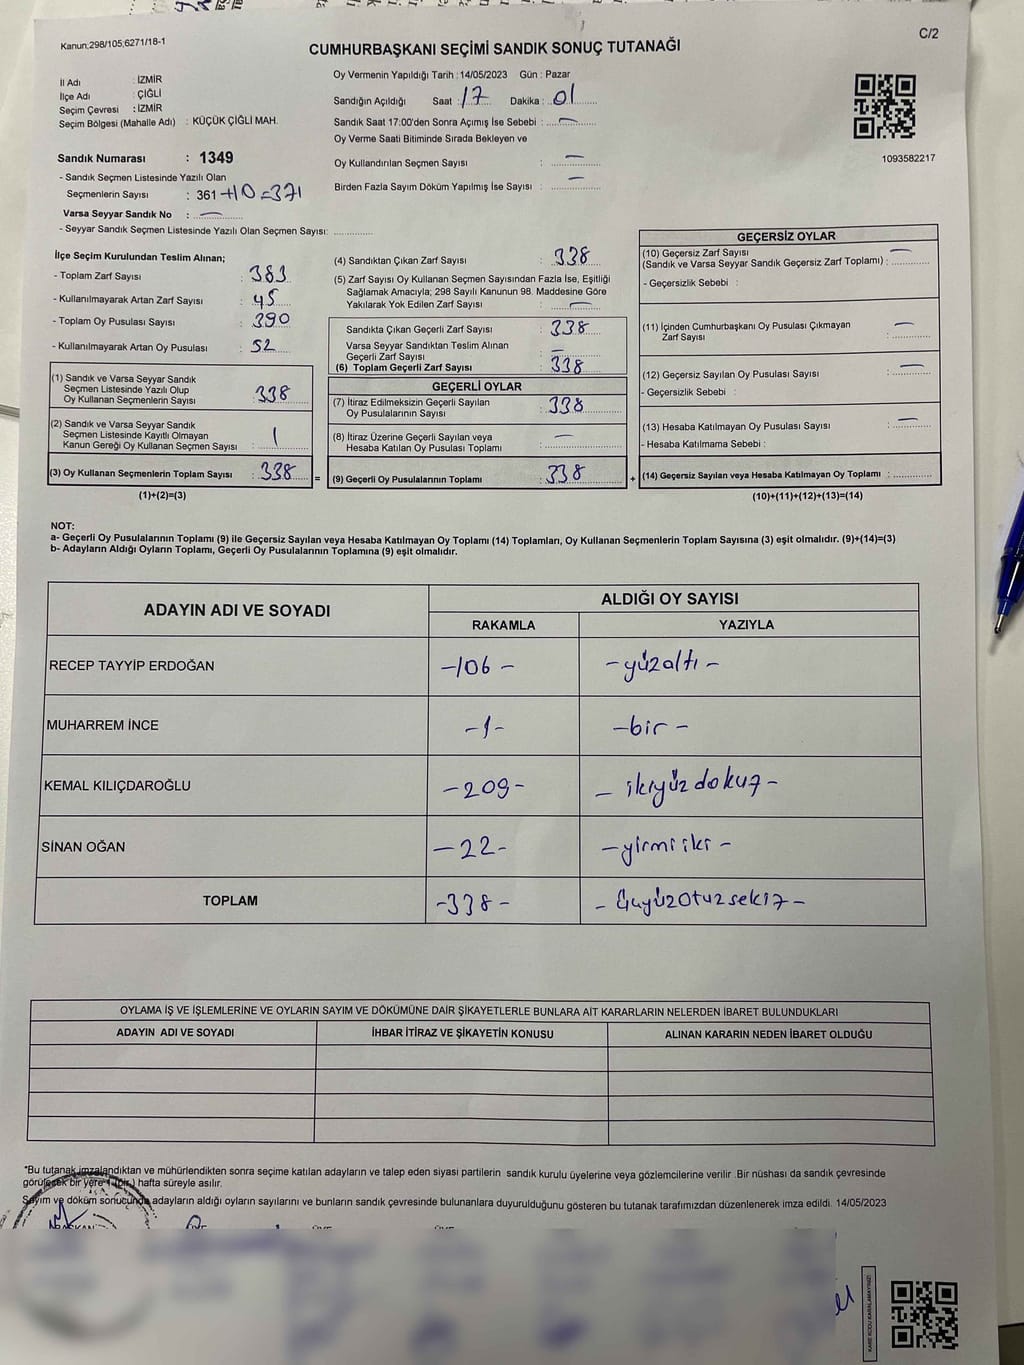 Kanun;298/105;6271/18-1
C/2
CUMHURBAŞKANI SEÇİMİ SANDIK SONUÇ TUTANAĞI
İl Adı : İZMİR
İlçe Adı : ÇİĞLİ
Seçim Çevresi : İZMİR
Seçim Bölgesi (Mahalle Adı) : KÜÇÜK ÇİĞLİ MAH.
Sandık Numarası : 1349
- Sandık Seçmen Listesinde Yazılı Olan
Seçmenlerin Sayısı : 361 +10=371
Varsa Seyyar Sandık No : —
- Seyyar Sandık Seçmen Listesinde Yazılı Olan Seçmen Sayısı:
Oy Vermenin Yapıldığı Tarih : 14/05/2023 Gün : Pazar
Sandığın Açıldığı Saat : 17 Dakika : 01
Sandık Saat 17:00'den Sonra Açımış İse Sebebi : —
Oy Verme Saati Bitiminde Sırada Bekleyen ve
Oy Kullandırılan Seçmen Sayısı : —
Birden Fazla Sayım Döküm Yapılmış İse Sayısı : —
1093582217
İlçe Seçim Kurulundan Teslim Alınan;
- Toplam Zarf Sayısı : 383
- Kullanılmayarak Artan Zarf Sayısı : 45
- Toplam Oy Pusulası Sayısı : 390
- Kullanılmayarak Artan Oy Pusulası : 52
(1) Sandık ve Varsa Seyyar Sandık
Seçmen Listesinde Yazılı Olup
Oy Kullanan Seçmenlerin Sayısı : 338
(2) Sandık ve Varsa Seyyar Sandık
Seçmen Listesinde Kayıtlı Olmayan
Kanun Gereği Oy Kullanan Seçmen Sayısı : 1
(3) Oy Kullanan Seçmenlerin Toplam Sayısı : 338 =
(1)+(2)=(3)
(4) Sandıktan Çıkan Zarf Sayısı : 338
(5) Zarf Sayısı Oy Kullanan Seçmen Sayısından Fazla İse, Eşitliği
Sağlamak Amacıyla; 298 Sayılı Kanunun 98. Maddesine Göre
Yakılarak Yok Edilen Zarf Sayısı : —
Sandıkta Çıkan Geçerli Zarf Sayısı : 338
Varsa Seyyar Sandıktan Teslim Alınan
Geçerli Zarf Sayısı : —
(6) Toplam Geçerli Zarf Sayısı : 338
GEÇERLİ OYLAR
(7) İtiraz Edilmeksizin Geçerli Sayılan
Oy Pusulalarının Sayısı : 338
(8) İtiraz Üzerine Geçerli Sayılan veya
Hesaba Katılan Oy Pusulası Toplamı : —
(9) Geçerli Oy Pusulalarının Toplamı : 338 +
GEÇERSİZ OYLAR
(10) Geçersiz Zarf Sayısı —
(Sandık ve Varsa Seyyar Sandık Geçersiz Zarf Toplamı) :
- Geçersizlik Sebebi :
(11) İçinden Cumhurbaşkanı Oy Pusulası Çıkmayan
Zarf Sayısı : —
(12) Geçersiz Sayılan Oy Pusulası Sayısı : —
- Geçersizlik Sebebi :
(13) Hesaba Katılmayan Oy Pusulası Sayısı : —
- Hesaba Katılmama Sebebi :
(14) Geçersiz Sayılan veya Hesaba Katılmayan Oy Toplamı :
(10)+(11)+(12)+(13)=(14)
NOT:
a- Geçerli Oy Pusulalarının Toplamı (9) ile Geçersiz Sayılan veya Hesaba Katılmayan Oy Toplamı (14) Toplamları, Oy Kullanan Seçmenlerin Toplam Sayısına (3) eşit olmalıdır. (9)+(14)=(3)
b- Adayların Aldığı Oyların Toplamı, Geçerli Oy Pusulalarının Toplamına (9) eşit olmalıdır.
ADAYIN ADI VE SOYADI
ALDIĞI OY SAYISI
RAKAMLA YAZIYLA
RECEP TAYYİP ERDOĞAN -106- -yüzaltı-
MUHARREM İNCE -1- -bir-
KEMAL KILIÇDAROĞLU -209- -ikiyüzdokuz-
SİNAN OĞAN -22- -yirmiiki-
TOPLAM -338- -üçyüzotuzsekiz-
OYLAMA İŞ VE İŞLEMLERİNE VE OYLARIN SAYIM VE DÖKÜMÜNE DAİR ŞİKAYETLERLE BUNLARA AİT KARARLARIN NELERDEN İBARET BULUNDUKLARI
ADAYIN ADI VE SOYADI İHBAR İTİRAZ VE ŞİKAYETİN KONUSU ALINAN KARARIN NEDEN İBARET OLDUĞU
"Bu tutanak imzalandıktan ve mühürlendikten sonra seçime katılan adayların ve talep eden siyasi partilerin sandık kurulu üyelerine veya gözlemcilerine verilir .Bir nüshası da sandık çevresinde
görülecek bir yere 1 (bir) hafta süreyle asılır.
Sayım ve döküm sonucunda adayların aldığı oyların sayılarını ve bunların sandık çevresinde bulunanlara duyurulduğunu gösteren bu tutanak tarafımızdan düzenlenerek imza edildi. 14/05/2023
BAŞKAN
KARE KODU KARALAMAYINIZ!